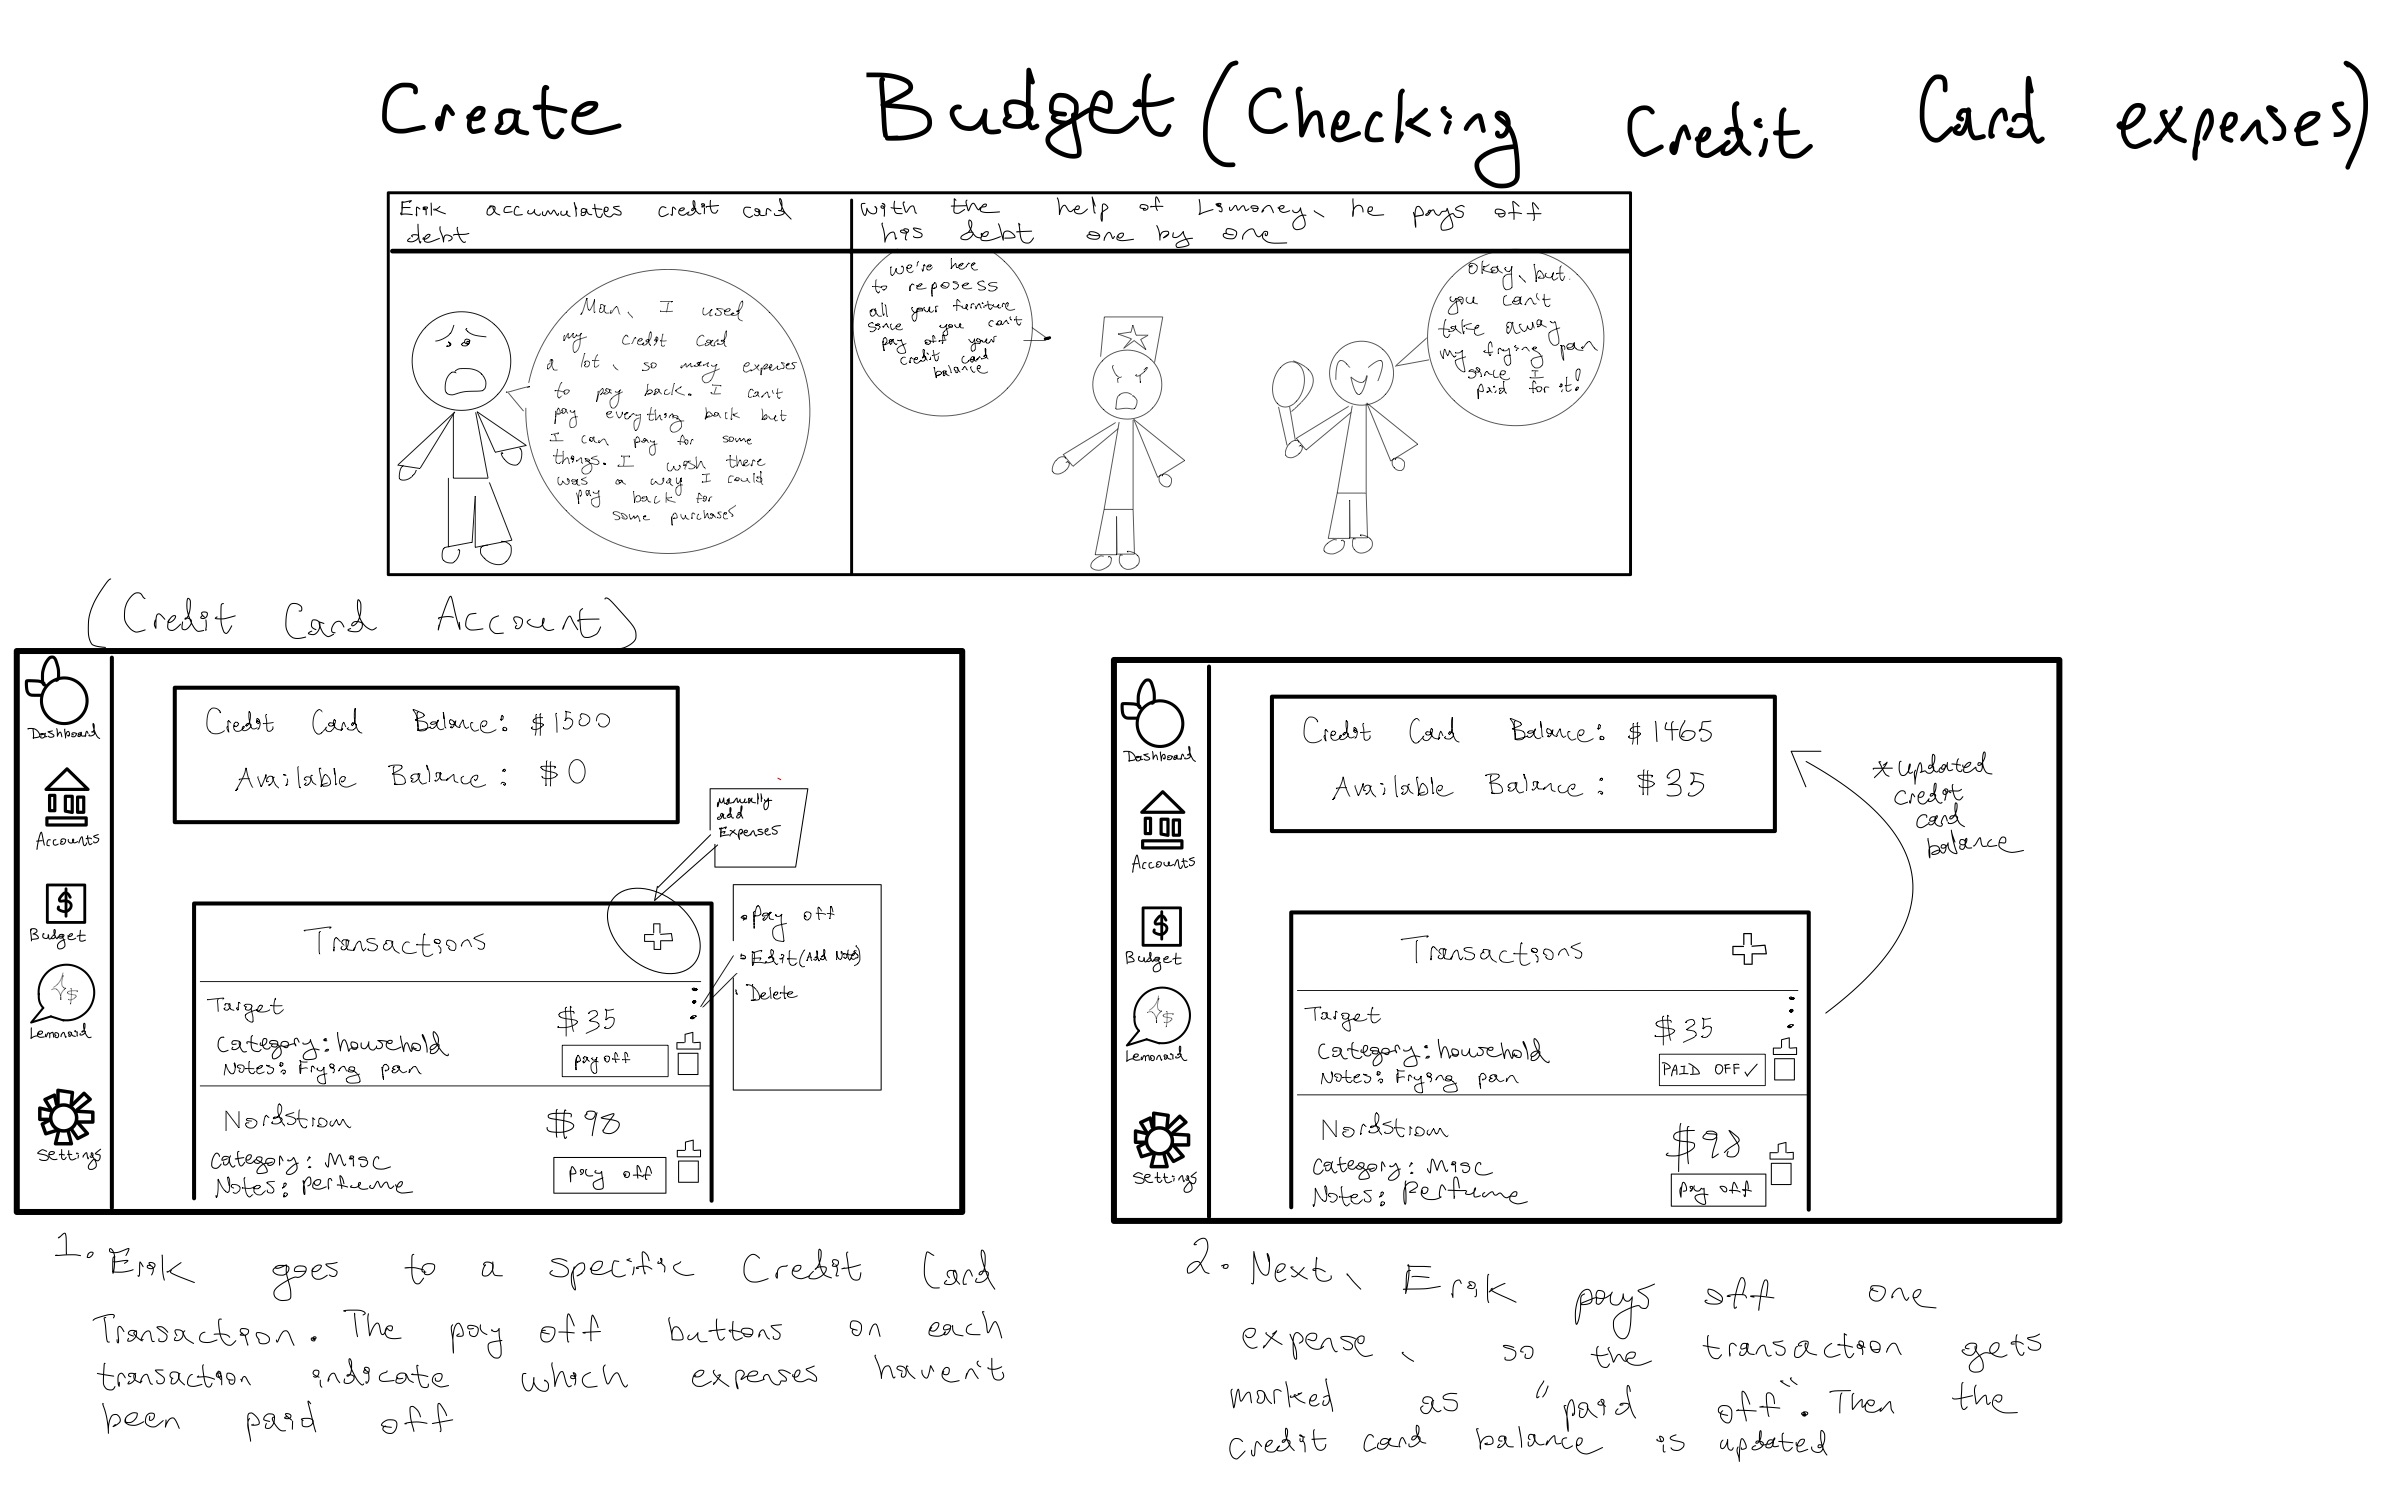 Create Budget (Checking Credit Card expenses)
Erik accumulates credit card
debt
with the help of Lsmoney, he pays off
his debt one by one
Man, I used
my credit card
a lot, so many expenses
to pay back. I can't
pay everything back but
I can pay for some
things. I wish there
was a way I could
pay back for
some purchases
we're here
to reposess
all your furniture
since you can't
pay off your
credit card
balance
Okay, but
you can't
take away
my frying pan
since I
paid for it!
(Credit Card Account)
Dashboard
Accounts
Budget
$
Settings
Credit Card Balance: $1500
Available Balance: $0
manually
add
Expenses
Transactions
• Pay off
• Edit (Add Note)
• Delete
Target
$35
Category: household
Notes: Frying pan
pay off
Nordstrom
$98
Category: Misc
Notes: perfume
pay off
1. Erik goes to a specific Credit Card
Transaction. The pay off buttons on each
transaction indicate which expenses haven't
been paid off
Dashboard
Accounts
Budget
$
Settings
Credit Card Balance: $1465
Available Balance: $35
* updated
credit
card
balance
Transactions
Target
$35
Category: household
Notes: Frying pan
PAID OFF ✓
Nordstrom
$98
Category: Misc
Notes: perfume
pay off
2. Next, Erik pays off one
expense, so the transaction gets
marked as "paid off". Then the
credit card balance is updated